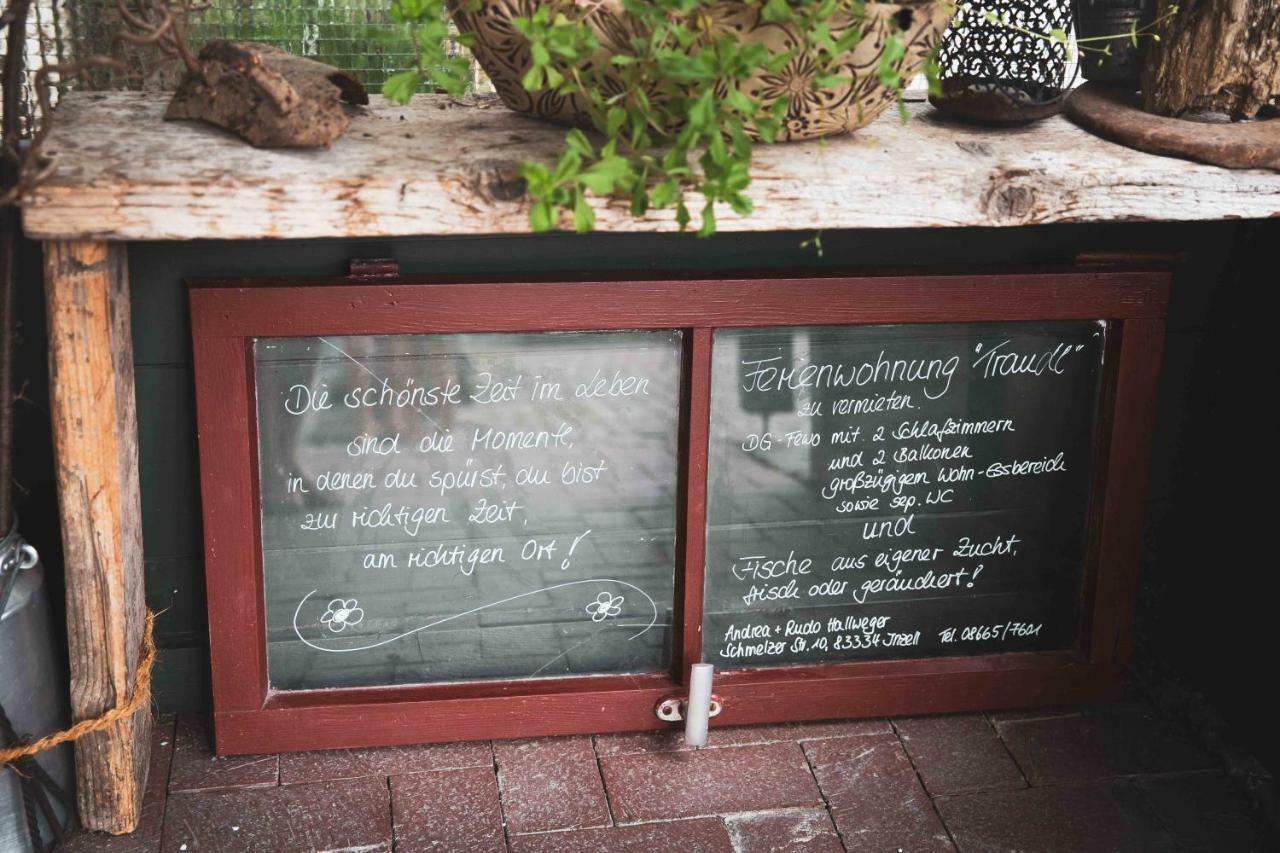 Die schönste Zeit im Leben
sind die Momente,
in denen du spürst, du bist
zur richtigen Zeit,
am richtigen Ort!
Ferienwohnung "Traudl"
zu vermieten.
DG-Fewo mit 2 Schlafzimmern
und 2 Balkonen
großzügigem Wohn-Essbereich
sowie sep. WC
und
Fische aus eigener Zucht,
frisch oder geräuchert!
Andrea + Rudo Hallweger
Schmelzer Str. 10, 83334 Inzell Tel. 08665/7601